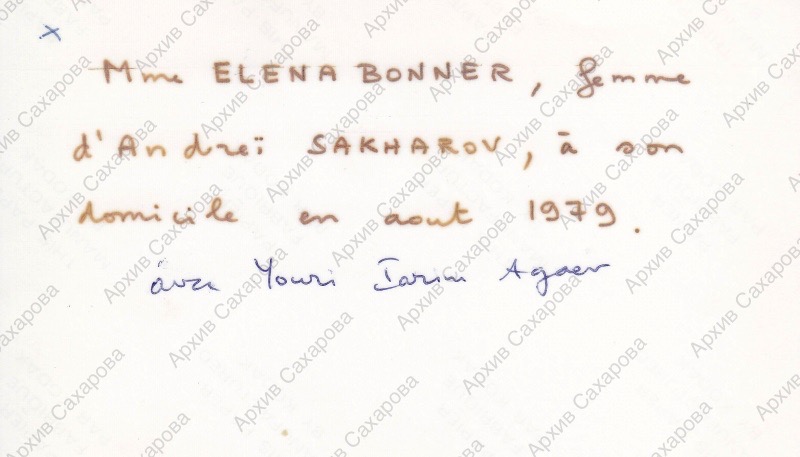 Mme ELENA BONNER, femme
d'Andreï SAKHAROV, à son
domicile en aout 1979.
avec Youri Iarim Agaev
Архив Сахарова